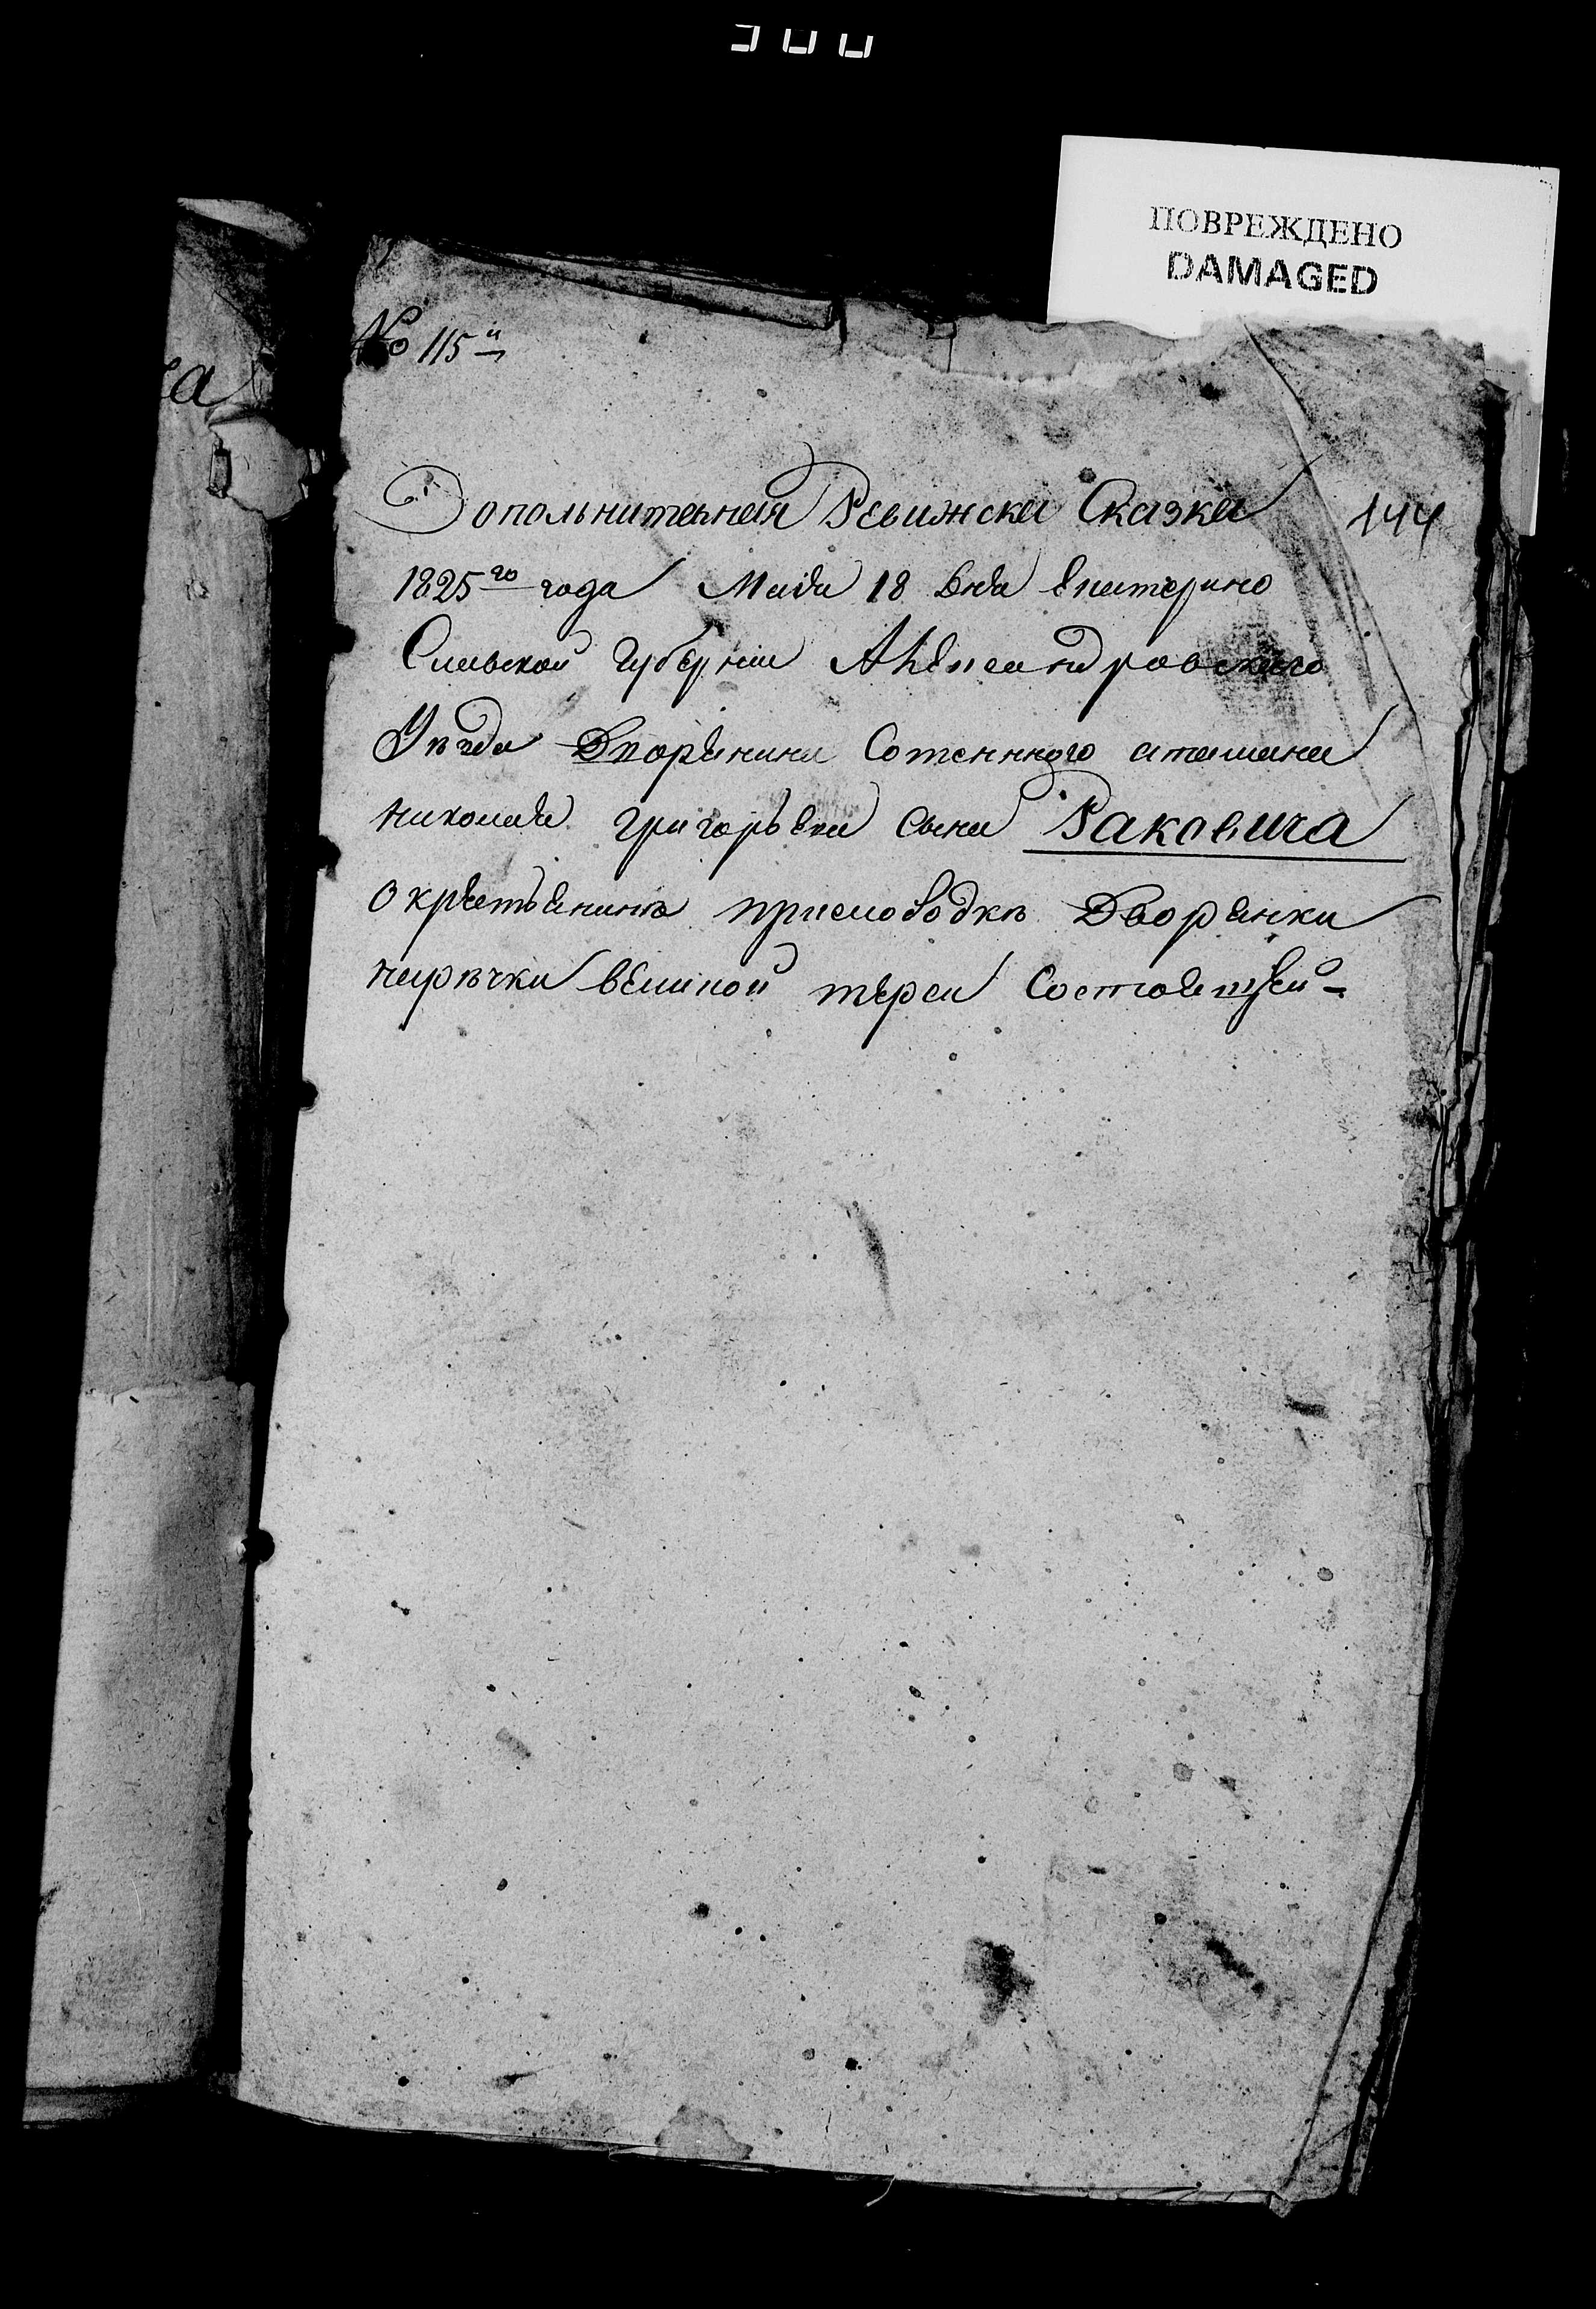 ПОВРЕЖДЕНО
DAMAGED
№ 115й
а
Допольнительная Ревижска Сказка 144
1825го года Маия 18 дня Екатерино
Славской губернии Александровского
Уезда Дворянина Сотеннного атамана
николая григорьева сына Раковича
о крестьянинѣ прислободкѣ Дворянки
нарѣчки великой терсы Состоящей-